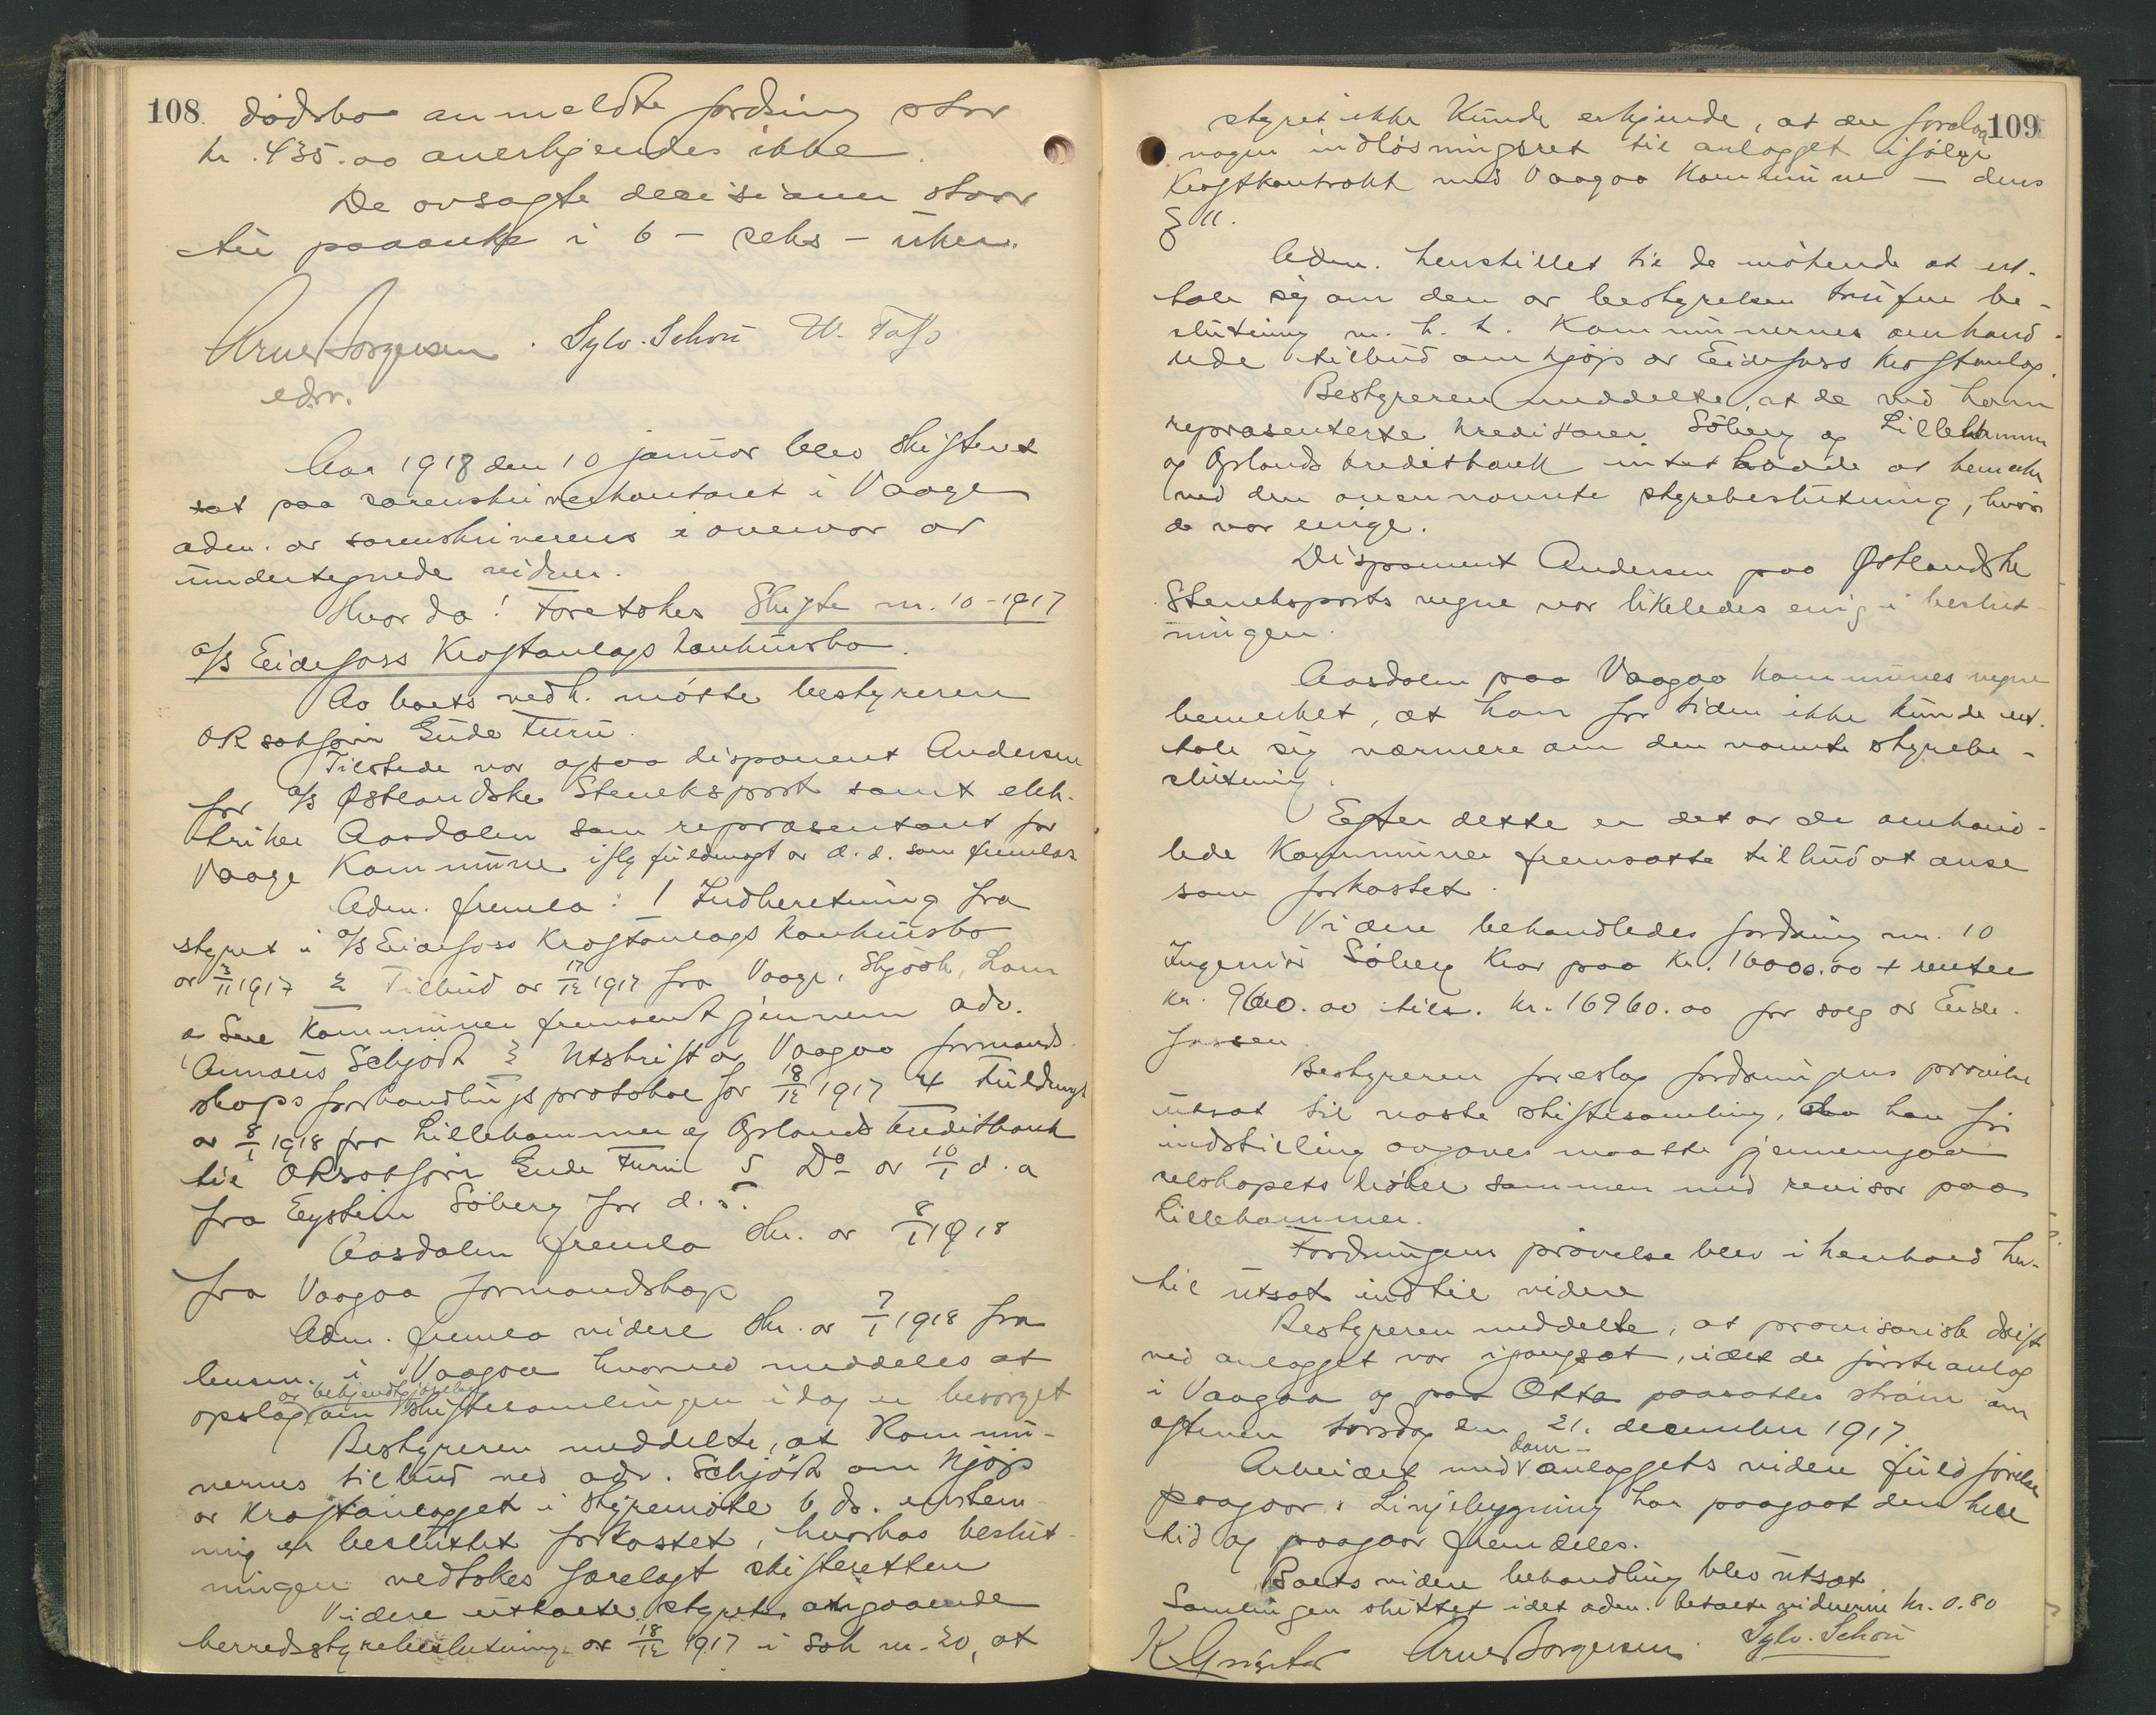 108 dödsbo anmeldte fordring stor
kr. 435.00 anerkjendes ikke.
De avsagte decisioner staar
til paaanke i 6 - seks - uker.
Arne Borgersen. Sylv. Schou W. Fass
edsv.
Aar 1918 den 10 januar blev skifteret
sat paa sorenskriverkontoret i Vaage
adm. av sorenskriveren i overvær av
undertegnede vidner.
Hvor da! Foretokes Skifte nr. 10-1917
a/s Eidefoss Kraftanlags konkursbo.
Av boets vedk. mötte bestyreren
OR sakförer Gude Furu.
Tilstede var ogsaa disponent Andersen
for a/s Østlandske Steneksport samt elek-
triker Aasdalen som repræsentant for
Vaage Kommune iflg fuldmagt av d. d. som fremlas
Adm. fremla: 1 Indberetning fra
styret i a/s Eidefoss Kraftanlags konkursbo
av 3/11 1917 2 Tilbud av 17/12 1917 fra Vaage, Skjaak, Lom
o Sell Kommuner fremsendt gjennem adv.
Annæus Schjødt 3 Utskrift av Vaagaa formand-
skaps forhandlingsprotokol for 18/12 1917 4 Fuldmagt
av 8/1 1918 fra Lillehammer og Oplands Kreditbank
til ORsakfører Gude Furu 5 Do av 10/1 d. a
fra Eystein Söberg for d. s.
Aasdalen fremla skr. av 8/1 1918
fra Vaagaa formandskap
Adm. fremla videre skr. av 7/1 1918 fra
lensm. i Vaagaa hvorved meddeles at
av bekjendtgjørelse
opslag om skiftesamlingen idag er besörget
Bestyreren meddelte, at Kommu-
nernes tilbud ved adv. Schjödt om kjöp
av Kraftanlægget i styremöte 6 ds. enstem-
mig er besluttet forkastet, hvorhos beslut-
ningen vedtokes forelagt skifteretten
Videre uttalte styret angaaende
herredsstyrebeslutning av 18/12 1917 i sak nr. 20, at
109
styret ikke kunde erkjende, at der forelaa
nogen indlösningsret til anlægget ifölge
Kraftkontrakt med Vaagaa Kommune - dens
§ 11.
Adm. henstillet til de mötende at ut-
tale sig om den av bestyrelsen trufne be-
slutning m. h. t. Kommunernes omhand-
lede tilbud om kjöp av Eidefoss Kraftanlæg.
Bestyreren meddelte, at de ved ham
repræsenterte kreditorer Söberg og Lillehammer
og Oplands kreditbank intet hadde at bemerke
ved den ovennævnte styrebeslutning, hvori
de var enige.
Disponent Andersen paa Østlandske
Steneksports vegne var likeledes enig i beslut-
ningen.
Aasdalen paa Vaagaa Kommunes vegne
bemerket, at han for tiden ikke kunde ut-
tale sig nærmere om den nævnte styrebe-
slutning.
Efter dette er det av de omhand-
lede Kommuner fremsatte tilbud at anse
som forkastet.
Videre behandledes fordring nr. 10
Ingeniör Söberg krav paa kr. 16000.00 + renter
kr. 960.00 tils. kr. 16960.00 for salg av Eide-
fossen.
Bestyreren foreslog fordringens prövelse
utsat til næste skiftesamling, da han för
indstilling avgaves maatte gjennemgaa
selskapets böker sammen med revisor paa
Lillehammer.
Fordringens prövelse blev i henhold her-
til utsat indtil videre
Bestyreren meddelte, at provisorisk drift
ved anlægget var igangsat, idet de förste anlæg
i Vaagaa og paa Otta paasattes ström om
aftenen torsdag den 21. december 1917.
Arbeidet med dam-anlæggets videre fuldförelse
paagaar. Linjebygning har paagaat den hele
tid og paagaar fremdeles.
Boets videre behandling blev utsat
Samlingen sluttet idet adm. betalte vidnerne kr. 0.80
Arne Borgersen. Sylv. Schou